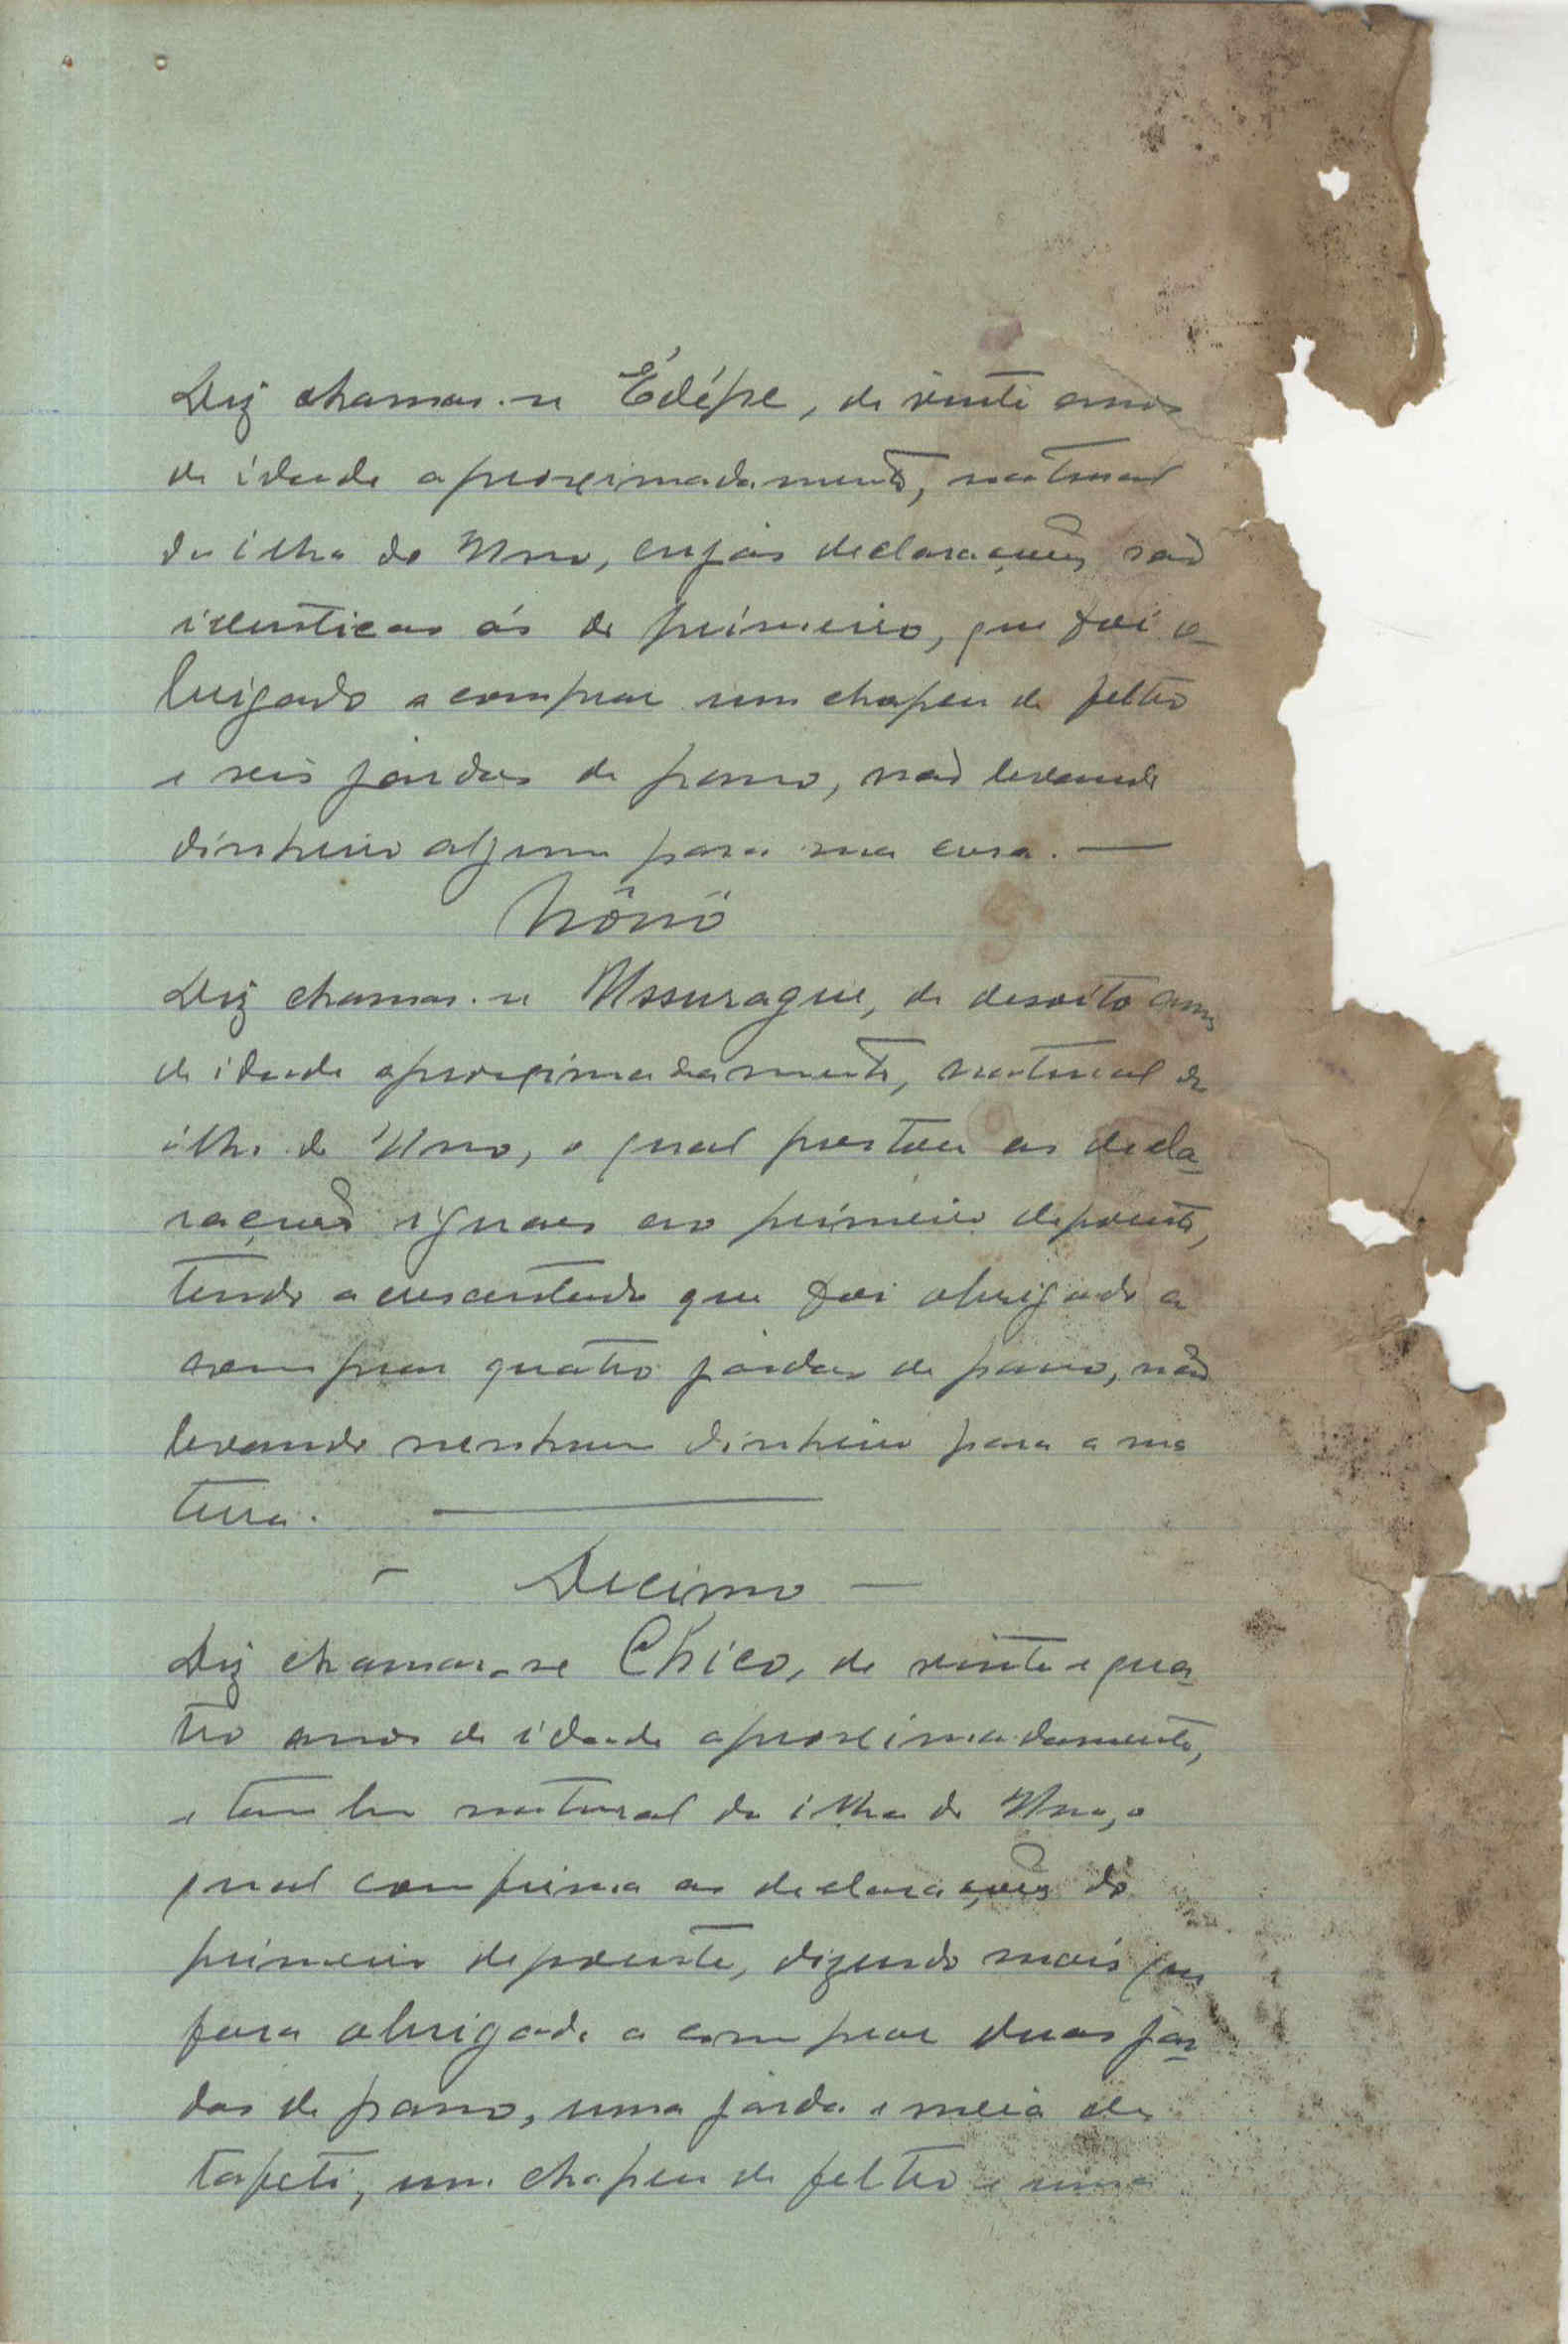 Diz chamar-se Édépe, de vinte anos
de idade aproximadamente, natural
da ilha do Uno, cujas declarações são
identicas ás do primeiro, que foi o-
brigado a comprar um chapeu de feltro
e seis járdas de pano, não levando
dinheiro algum para sua casa. —
Nôno
Diz chamar-se Ussurague, de desoito anos
de idade aproximadamente, natural da
ilha de Uno, o qual prestou as decla-
rações iguaes ao primeiro depoente,
tendo acrescentado que foi obrigado a
comprar quatro járdas de pano, não
levando nenhum dinheiro para a sua
terra. —
- Decimo —
Diz chamar-se Chico, de vinte e qua-
tro anos de idade aproximadamente,
e tambem natural da ilha de Uno, o
qual confirma as declarações do
primeiro depoente, dizendo mais que
fora obrigado a comprar duas jár-
das de pano, uma járda e meia de
tapete, um chapeu de feltro e uma